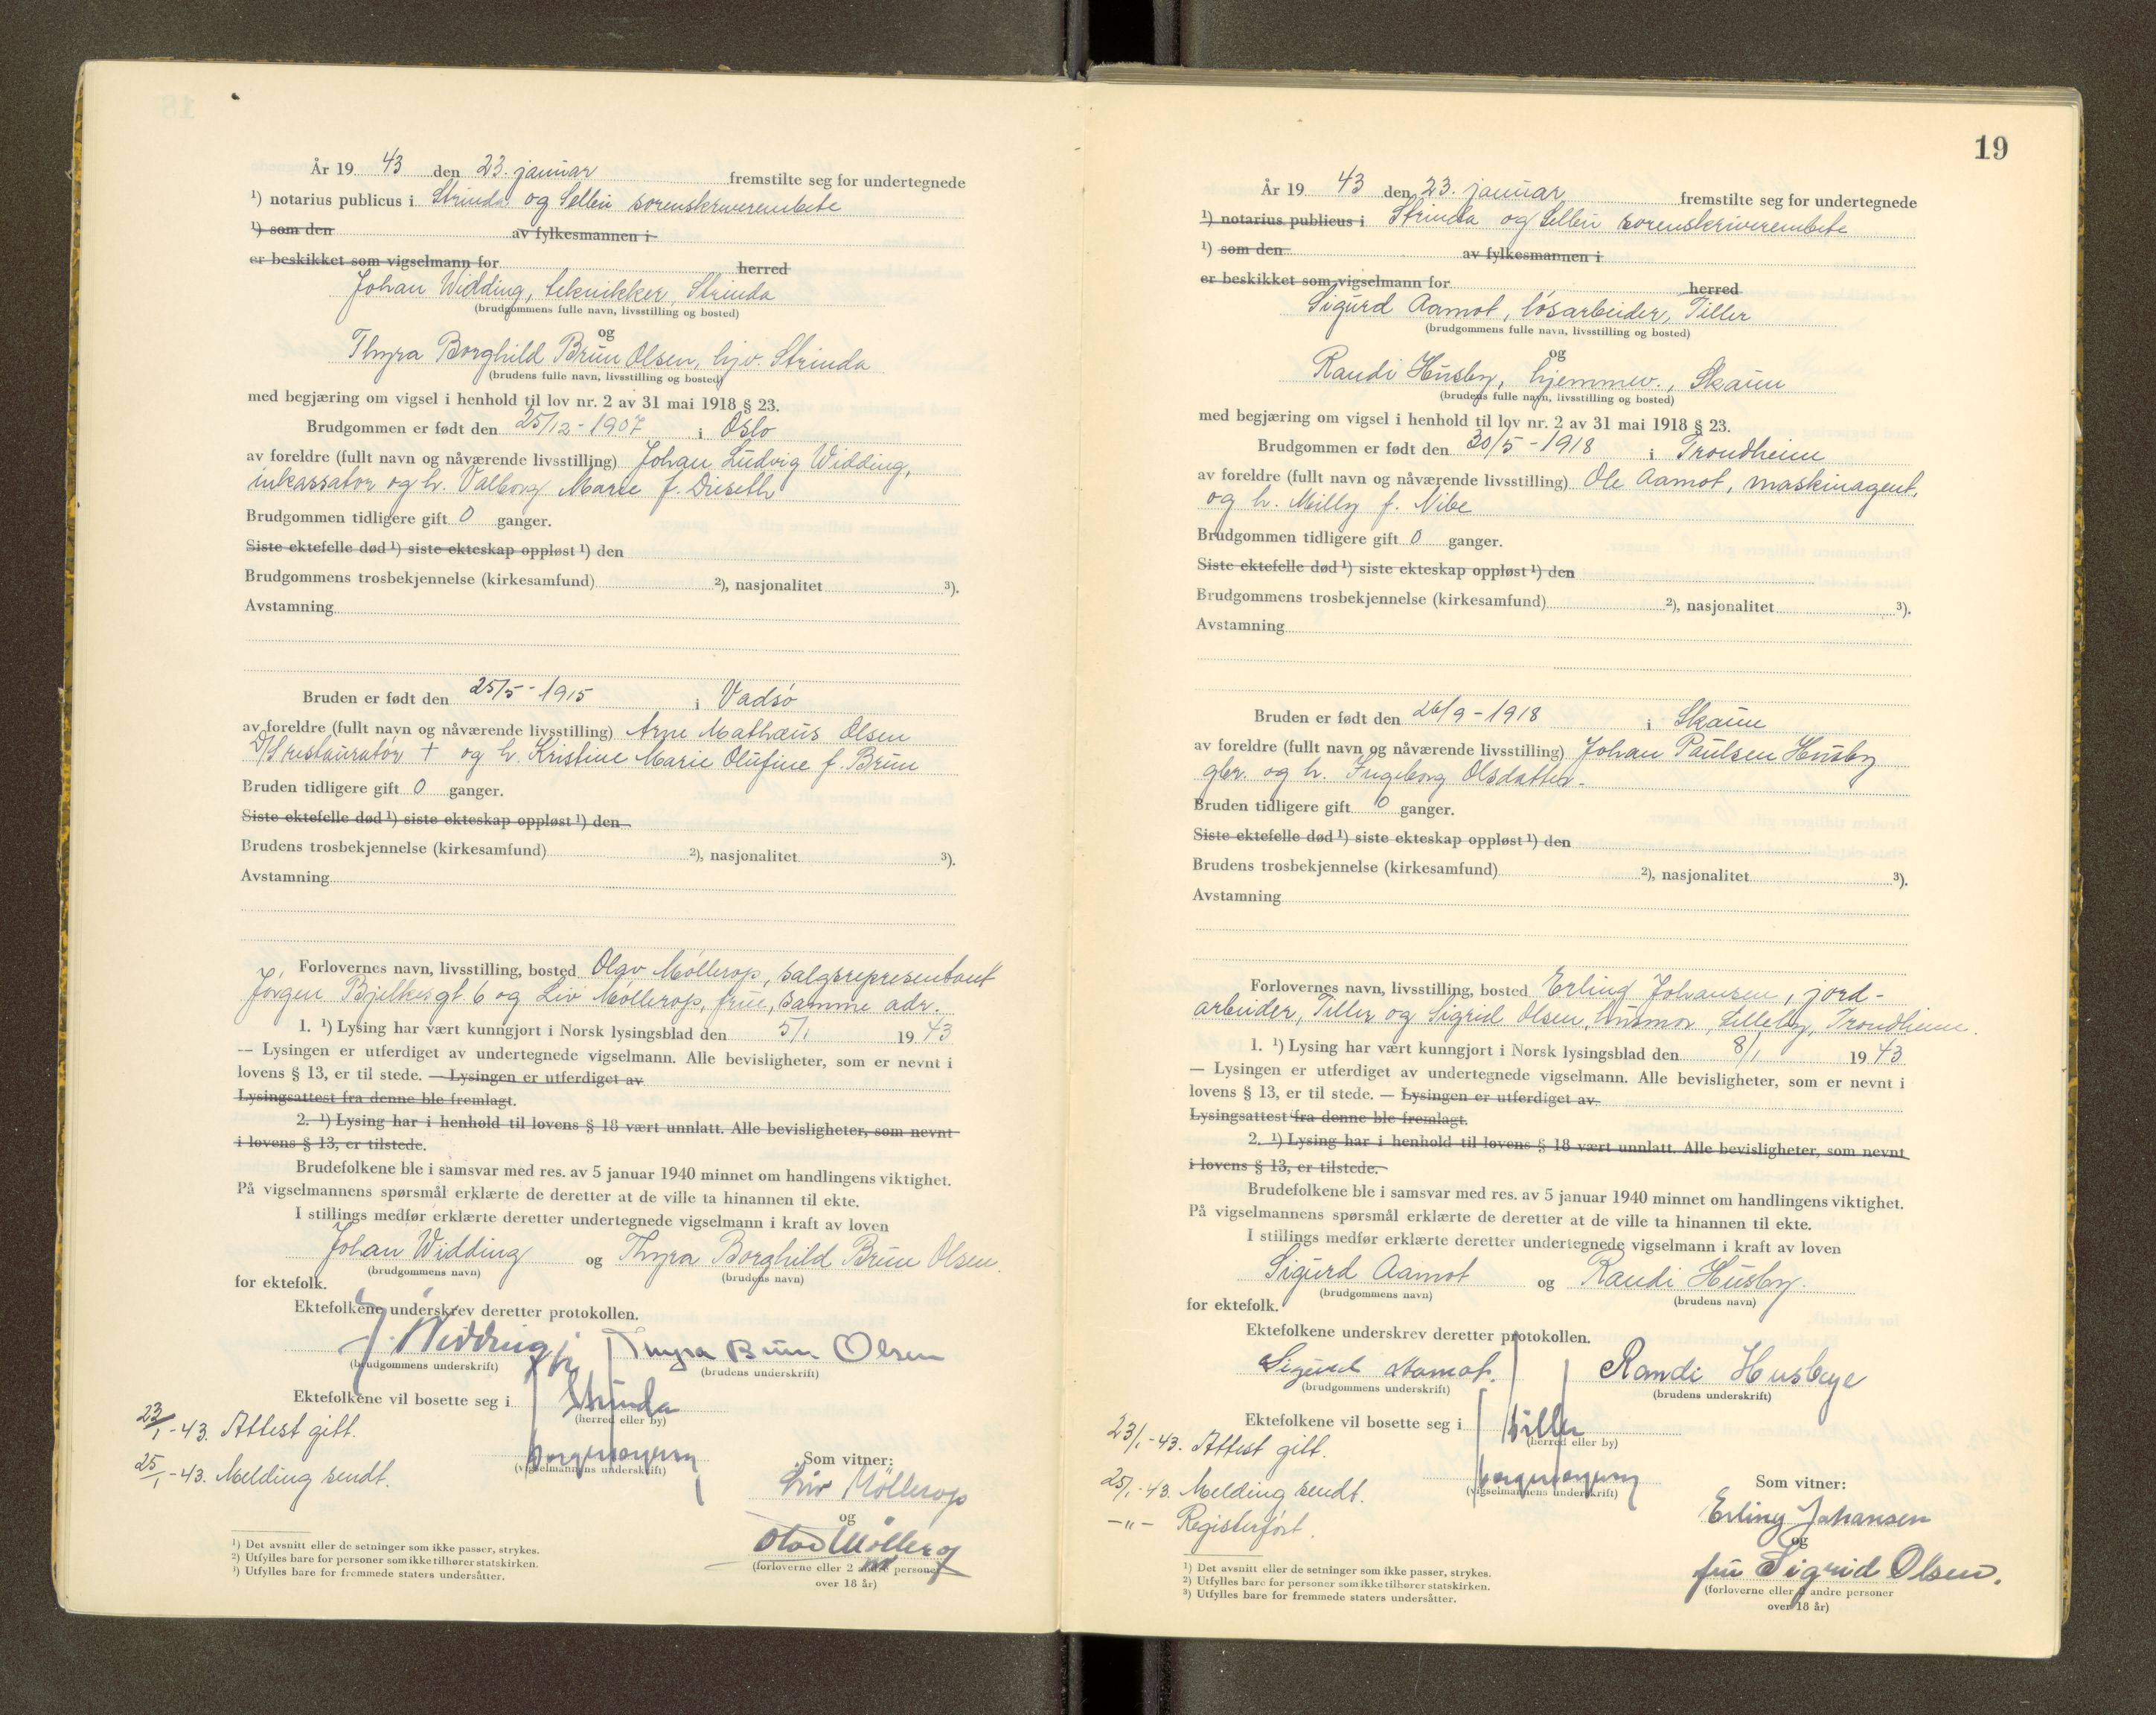 År 19 43 den 23. januar fremstilte seg for undertegnede
¹) notarius publicus i Strinda og Selbu sorenskriverembete
¹) som den av fylkesmannen i
er beskikket som vigselmann for herred
Johan Widding, teknikker, Strinda
(brudgommens fulle navn, livsstilling og bosted)
og
Thyra Borghild Brun Olsen, hjv. Strinda
(brudens fulle navn, livsstilling og bosted)
med begjæring om vigsel i henhold til lov nr. 2 av 31 mai 1918 § 23.
Brudgommen er født den 25/12 - 1907 i Oslo
av foreldre (fullt navn og nåværende livsstilling) Johan Ludvig Widding,
inkassator og h. Valborg Marie f. Dieseth
Brudgommen tidligere gift 0 ganger.
Siste ektefelle død ¹) siste ekteskap oppløst ¹) den
Brudgommens trosbekjennelse (kirkesamfund) ²), nasjonalitet ³).
Avstamning
Bruden er født den 25/5 - 1915 i Vadsø
av foreldre (fullt navn og nåværende livsstilling) Arne Mathæus Olsen
D/S restauratør + og h. Kristine Marie Olufine f. Brun
Bruden tidligere gift 0 ganger.
Siste ektefelle død ¹) siste ekteskap oppløst ¹) den
Brudens trosbekjennelse (kirkesamfund) ²), nasjonalitet ³).
Avstamning
Forlovernes navn, livsstilling, bosted Olav Møllerop, salgsrepresentant
Jørgen Bjelkesgt 6 og Liv Møllerop, frue, samme adr.
1. ¹) Lysing har vært kunngjort i Norsk lysingsblad den 5/1 19 43
— Lysingen er utferdiget av undertegnede vigselmann. Alle bevisligheter, som er nevnt i
lovens § 13, er til stede. — Lysingen er utferdiget av
Lysingsattest fra denne ble fremlagt.
2. ¹) Lysing har i henhold til lovens § 18 vært unnlatt. Alle bevisligheter, som nevnt
i lovens § 13, er tilstede.
Brudefolkene ble i samsvar med res. av 5 januar 1940 minnet om handlingens viktighet.
På vigselmannens spørsmål erklærte de deretter at de ville ta hinannen til ekte.
I stillings medfør erklærte deretter undertegnede vigselmann i kraft av loven
Johan Widding og Thyra Borghild Brun Olsen.
(brudgommens navn) (brudens navn)
for ektefolk.
Ektefolkene underskrev deretter protokollen.
J. Widding jr. Thyra Brun Olsen
(brudgommens underskrift) (brudens underskrift)
Ektefolkene vil bosette seg i Strinda
(herred eller by)
23/1 - 43. Attest gitt.
(vigselmannens underskrift)
25/1 - 43. Melding sendt.
Som vitner:
Liv Møllerop
og
Olav Møllerop
(forloverne eller 2 andre personer
over 18 år)
¹) Det avsnitt eller de setninger som ikke passer, strykes.
²) Utfylles bare for personer som ikke tilhører statskirken.
³) Utfylles bare for fremmede staters undersåtter.
19
År 19 43 den 23. januar fremstilte seg for undertegnede
¹) notarius publicus i Strinda og Selbu sorenskriverembete
¹) som den av fylkesmannen i
er beskikket som vigselmann for herred
Sigurd Aamot, løsarbeider, Tiller
(brudgommens fulle navn, livsstilling og bosted)
og
Randi Husby, hjemmev., Skaun
(brudens fulle navn, livsstilling og bosted)
med begjæring om vigsel i henhold til lov nr. 2 av 31 mai 1918 § 23.
Brudgommen er født den 30/5 - 1918 i Trondheim
av foreldre (fullt navn og nåværende livsstilling) Ole Aamot, maskinagent,
og h. Milly f. Nibe
Brudgommen tidligere gift 0 ganger.
Siste ektefelle død ¹) siste ekteskap oppløst ¹) den
Brudgommens trosbekjennelse (kirkesamfund) ²), nasjonalitet ³).
Avstamning
Bruden er født den 26/9 - 1918 i Skaun
av foreldre (fullt navn og nåværende livsstilling) Johan Paulsen Husby
gbr. og h. Ingeborg Olsdatter.
Bruden tidligere gift 0 ganger.
Siste ektefelle død ¹) siste ekteskap oppløst ¹) den
Brudens trosbekjennelse (kirkesamfund) ²), nasjonalitet ³).
Avstamning
Forlovernes navn, livsstilling, bosted Erling Johansen, jord-
arbeider, Tiller og Sigrid Olsen, husmor, Lilleby, Trondheim.
1. ¹) Lysing har vært kunngjort i Norsk lysingsblad den 8/1 19 43
— Lysingen er utferdiget av undertegnede vigselmann. Alle bevisligheter, som er nevnt i
lovens § 13, er til stede. — Lysingen er utferdiget av
Lysingsattest fra denne ble fremlagt.
2. ¹) Lysing har i henhold til lovens § 18 vært unnlatt. Alle bevisligheter, som nevnt
i lovens § 13, er tilstede.
Brudefolkene ble i samsvar med res. av 5 januar 1940 minnet om handlingens viktighet.
På vigselmannens spørsmål erklærte de deretter at de ville ta hinannen til ekte.
I stillings medfør erklærte deretter undertegnede vigselmann i kraft av loven
Sigurd Aamot og Randi Husby.
(brudgommens navn) (brudens navn)
for ektefolk.
Ektefolkene underskrev deretter protokollen.
Sigurd Aamot. Randi Husbye
(brudgommens underskrift) (brudens underskrift)
Ektefolkene vil bosette seg i Tiller
(herred eller by)
23/1 - 43. Attest gitt.
(vigselmannens underskrift)
25/1 - 43. Melding sendt.
—"— Registerført.
Som vitner:
Erling Johansen
og
fru Sigrid Olsen.
(forloverne eller 2 andre personer
over 18 år)
¹) Det avsnitt eller de setninger som ikke passer, strykes.
²) Utfylles bare for personer som ikke tilhører statskirken.
³) Utfylles bare for fremmede staters undersåtter.